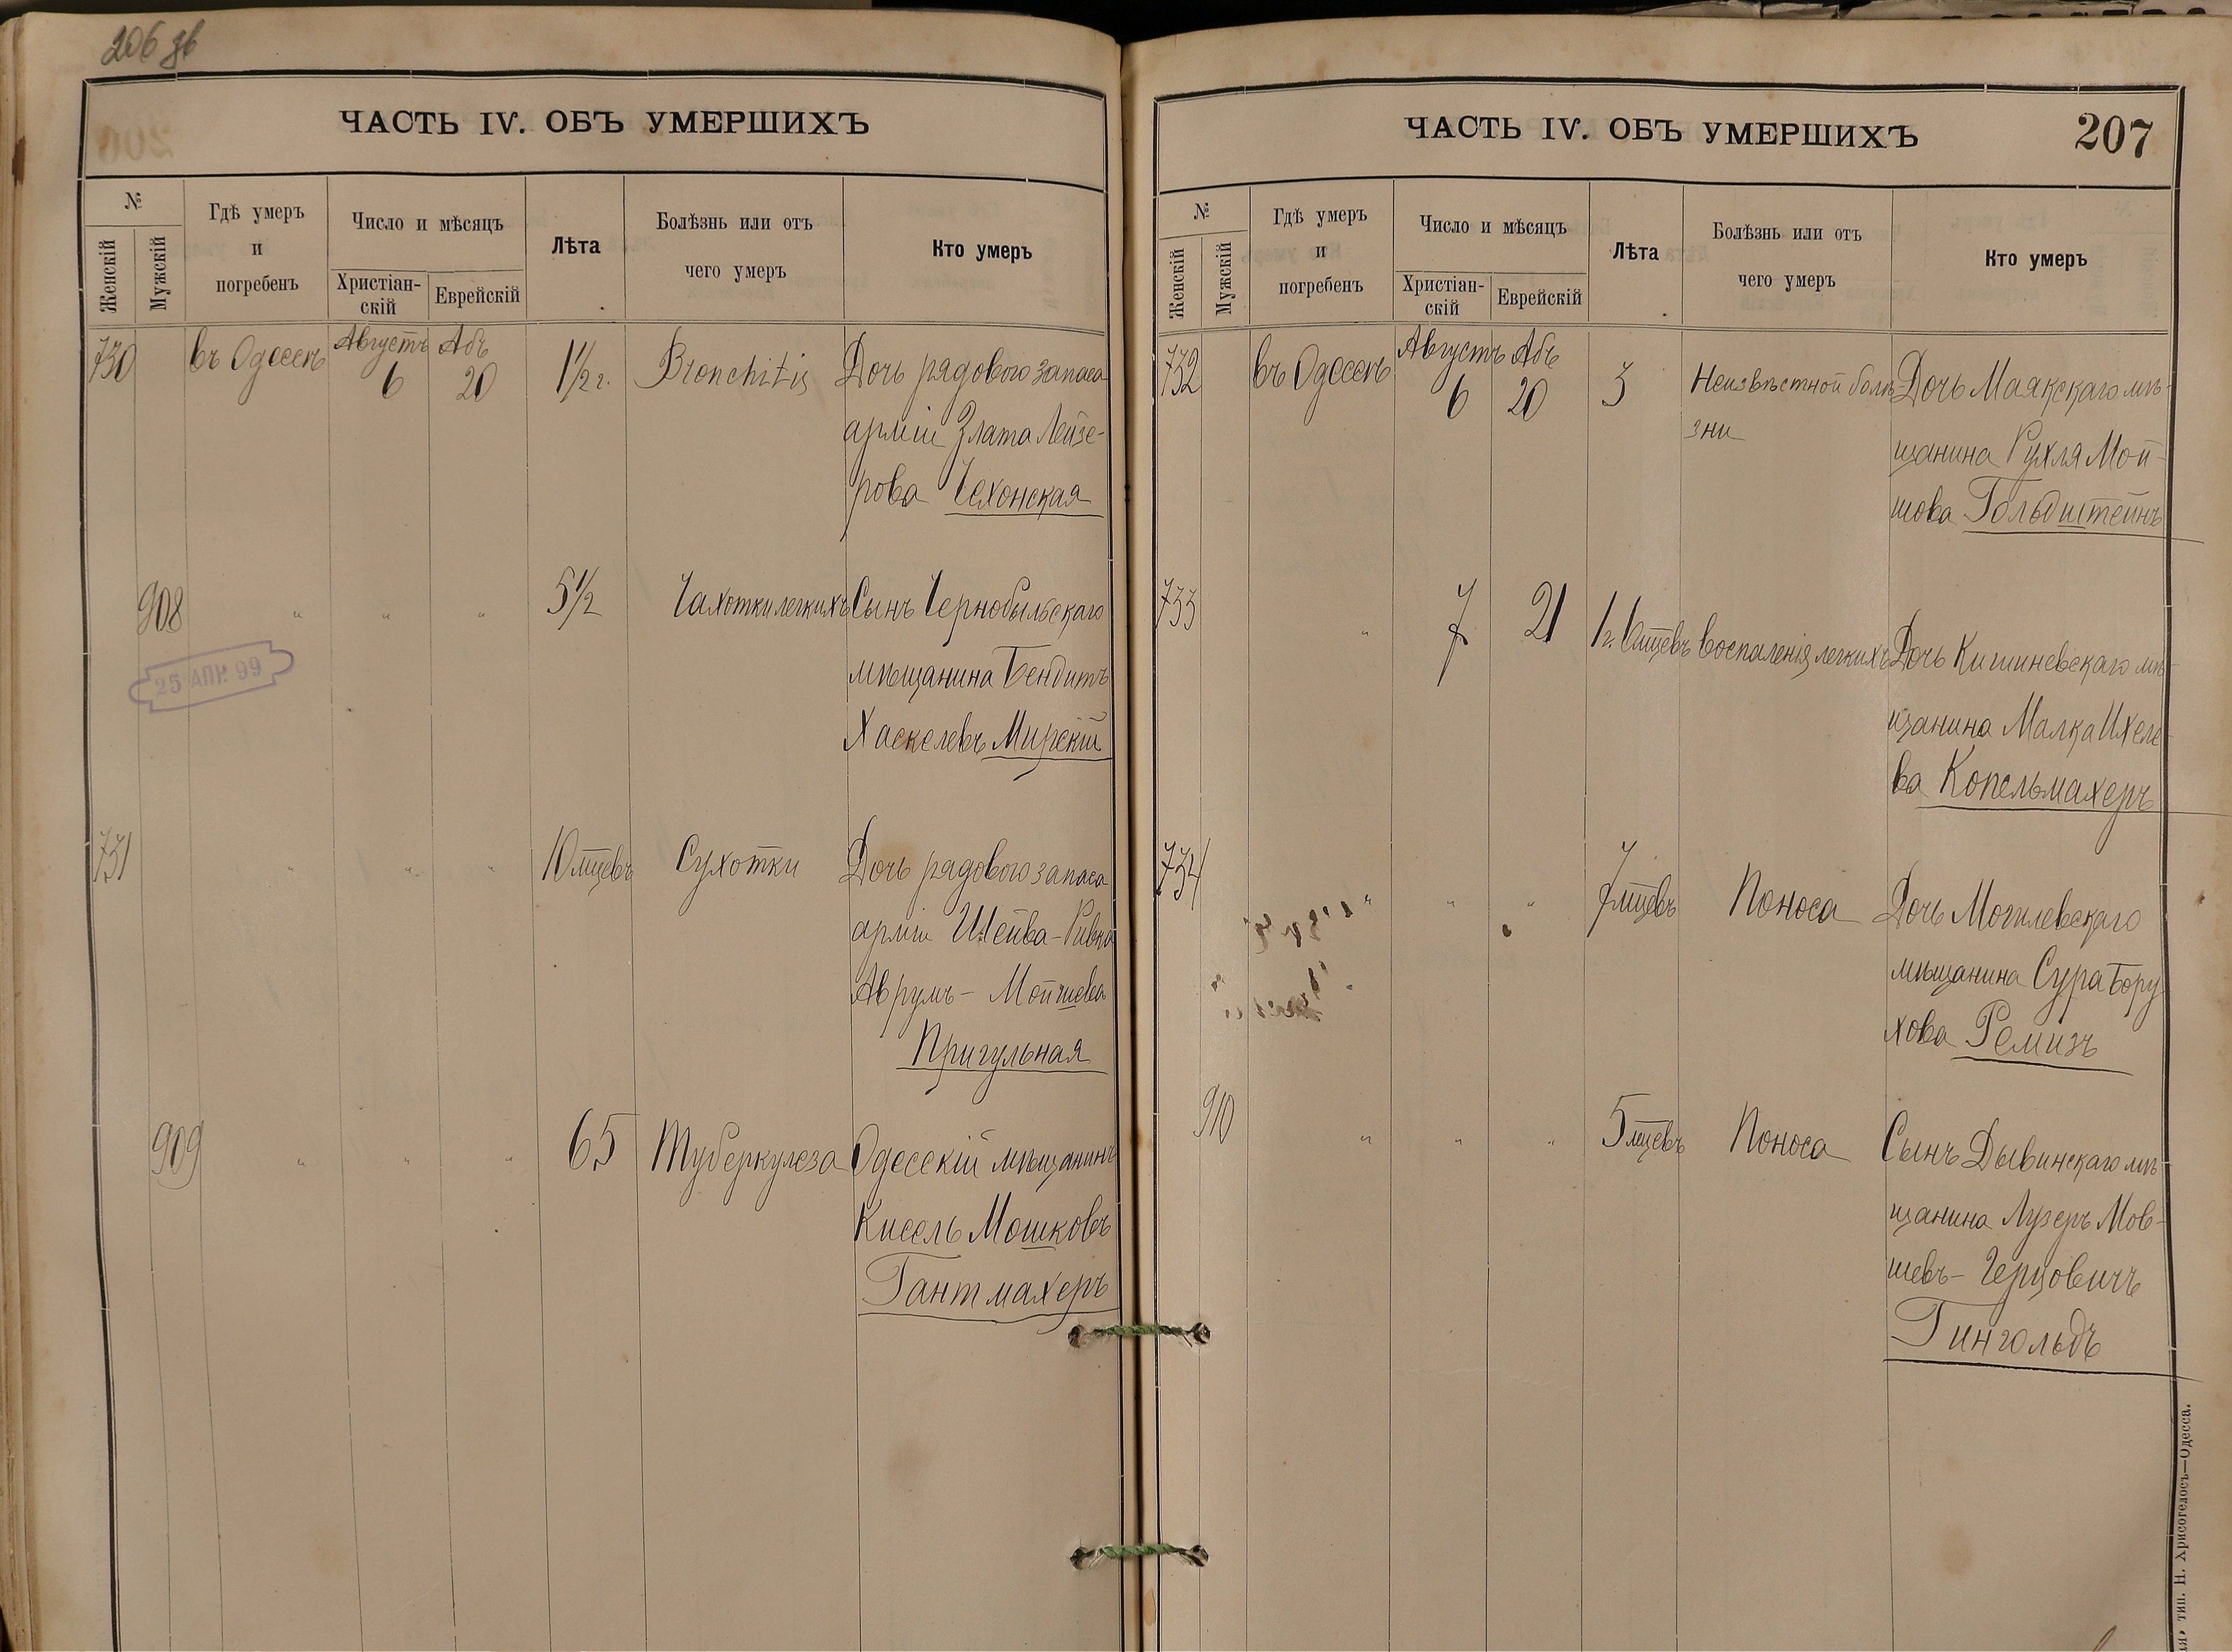 206 зв
ЧАСТЬ IV. ОБЪ УМЕРШИХЪ
№
Женскій
Мужскій
Гдѣ умеръ
и
погребенъ
Число и мѣсяцъ
Христіан-
скій
Еврейскій
Лѣта
Болѣзнь или отъ
чего умеръ
Кто умеръ
730 въ Одессѣ Августъ 6 Абъ 20 1½ г. Bronchitis Дочь рядового запаса
арміи Злата Лейзе-
рова Чехонская
908 " " " 5½ Чахотки легкихъ Сынъ Чернобыльскаго
мѣщанина Бендитъ
Хаскелевъ Мирскій
25 АПР. 99
731 " " " 10 мцевъ Сухотки Дочь рядового запаса
арміи Шейва-Ривка
Аврумъ- Мойшева
Пригульная
909 " " " 65 Туберкулеза Одесскій мѣщанинъ
Кисель Мошковъ
Гантмахеръ
ЧАСТЬ IV. ОБЪ УМЕРШИХЪ
207
№
Женскій
Мужскій
Гдѣ умеръ
и
погребенъ
Число и мѣсяцъ
Христіан-
скій
Еврейскій
Лѣта
Болѣзнь или отъ
чего умеръ
Кто умеръ
732 въ Одессѣ Августъ 6 Абъ 20 3 Неизвѣстной болѣ-
зни
Дочь Маякскаго мѣ-
щанина Рухля Мой-
шова Гольдштейнъ
733 " 7 21 1 г. 6 мцевъ Воспаленія легкихъ Дочь Кишиневскаго мѣ-
щанина Малка Ихеле-
ва Копельмахеръ
734 " " " 7 мцевъ Поноса Дочь Могилевскаго
мѣщанина Сура Бору-
хова Ремизъ
910 " " " 5 мцевъ Поноса Сынъ Дывинскаго мѣ-
щанина Лузеръ Мов-
шевъ- Герцовичъ
Гингольдъ
тип. Н. Хрисогелосъ—Одесса.